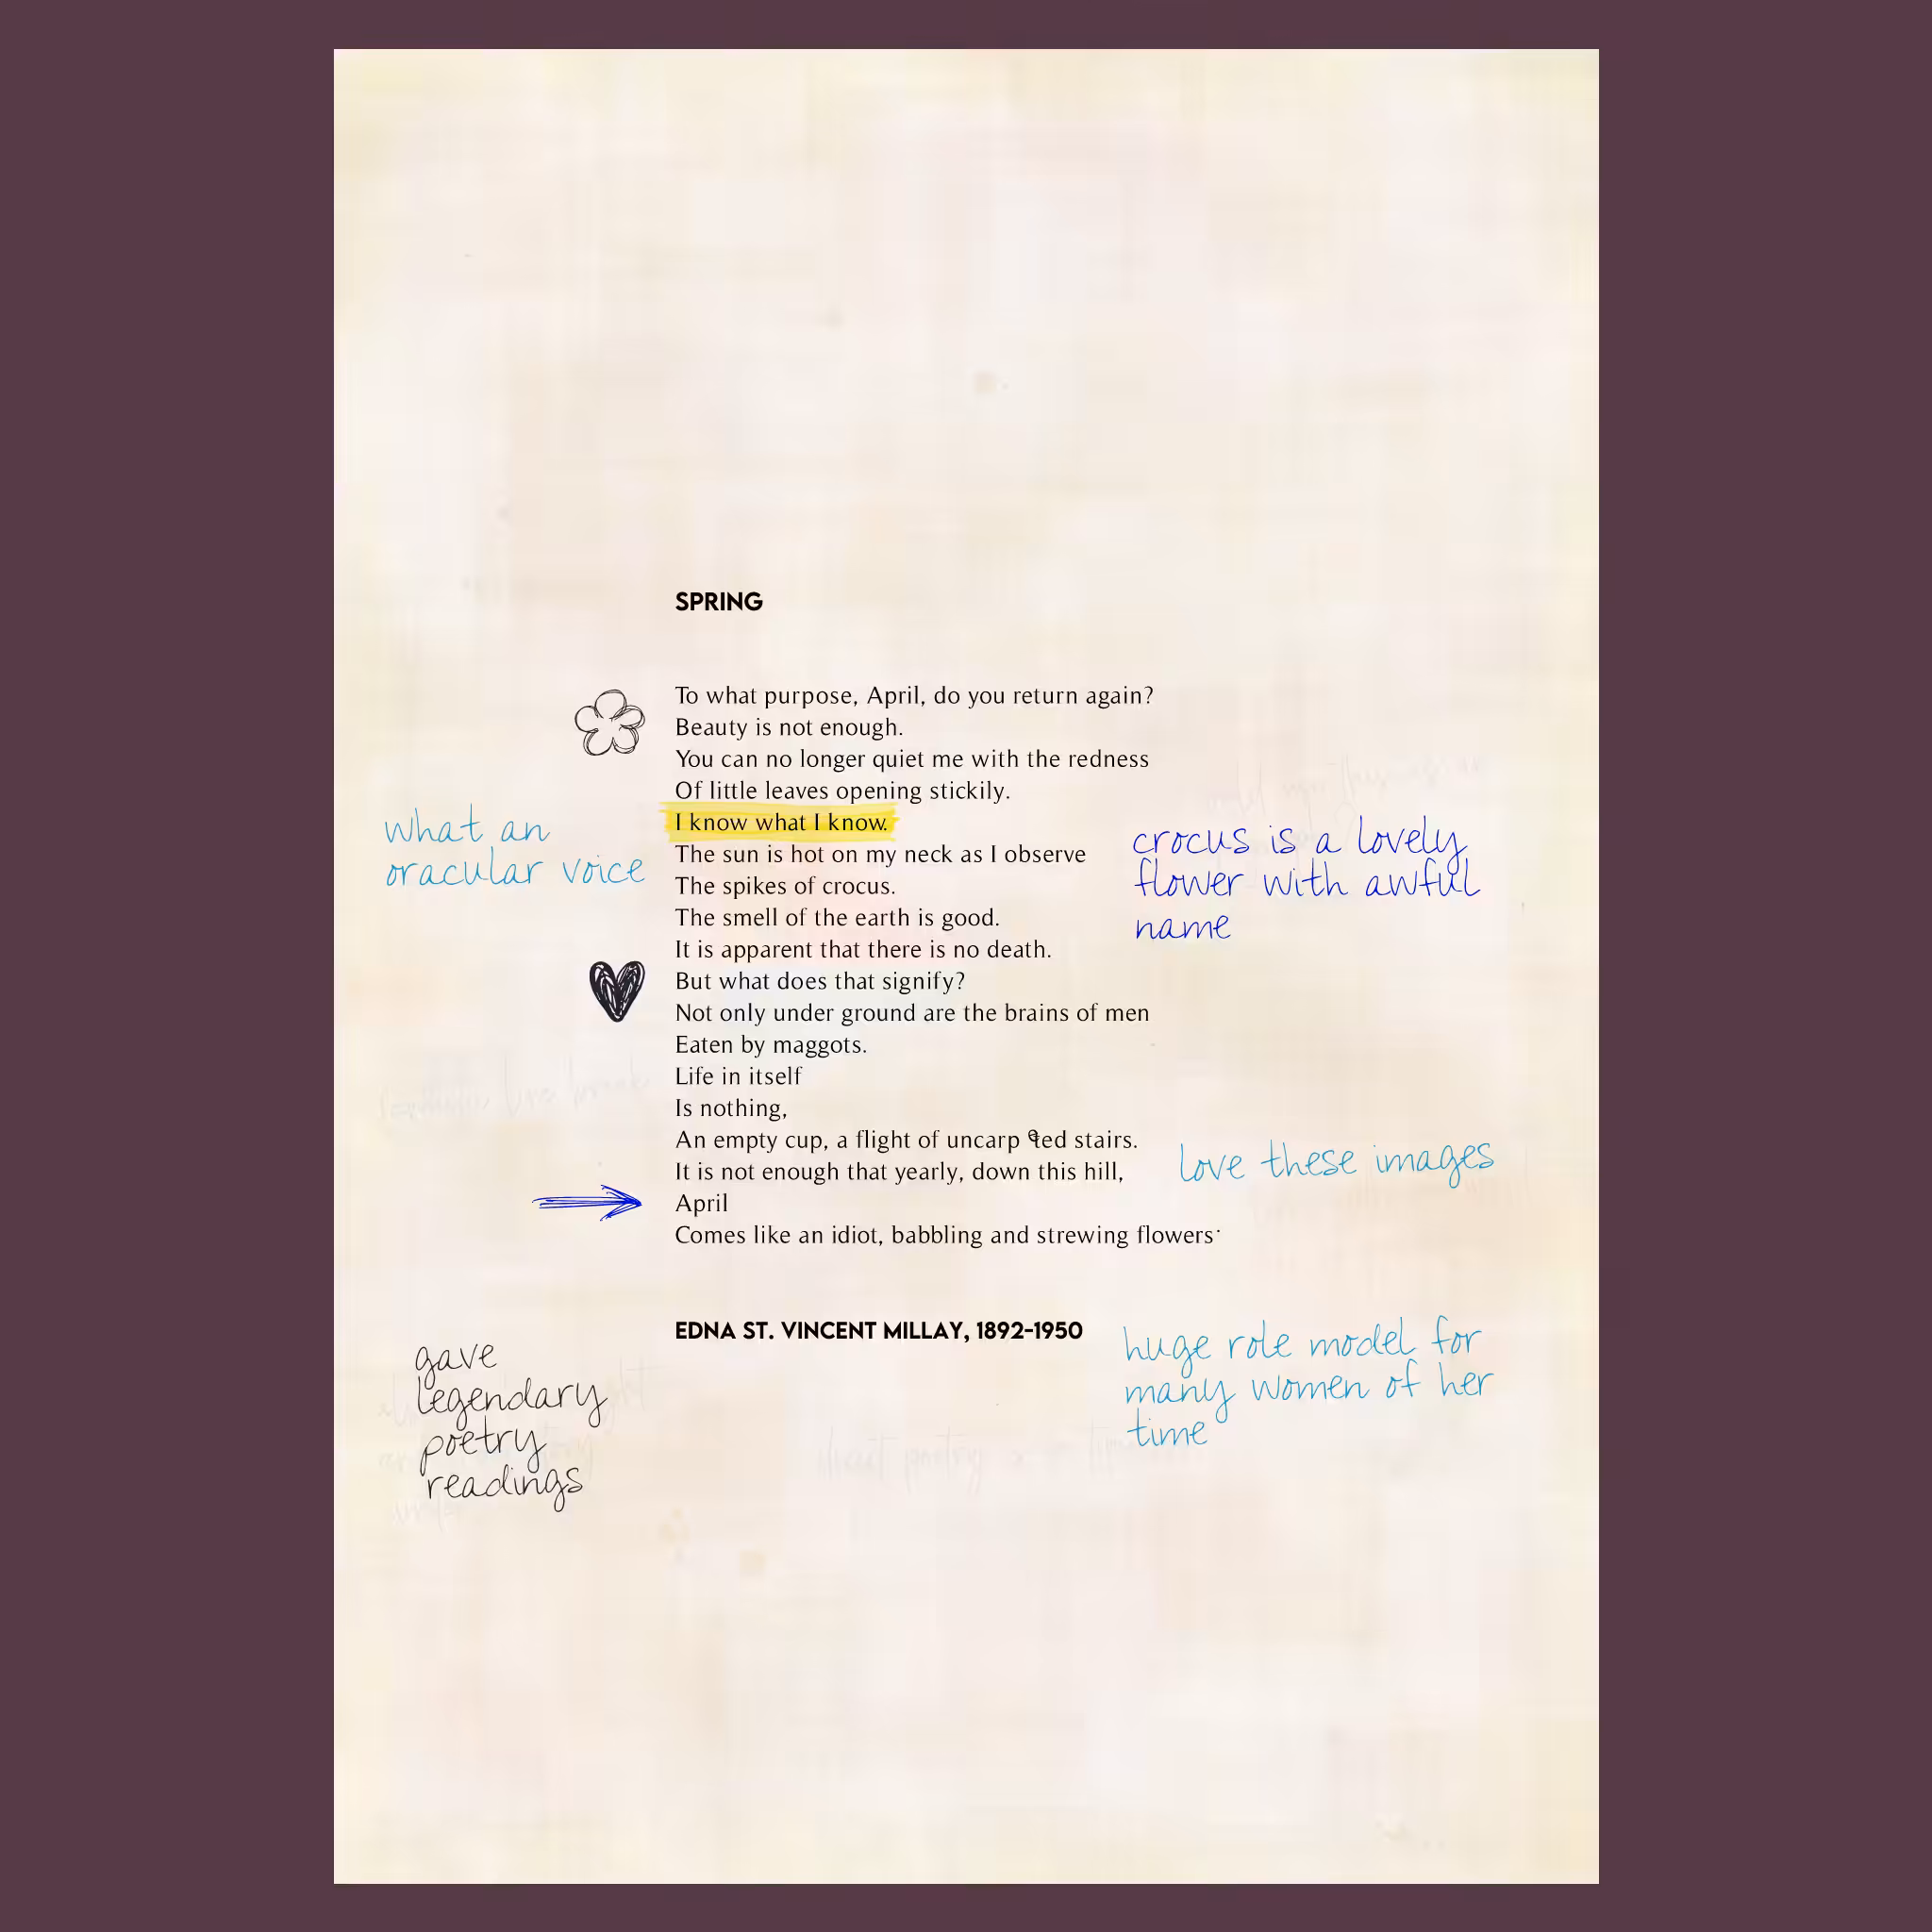 SPRING
To what purpose, April, do you return again?
Beauty is not enough.
You can no longer quiet me with the redness
Of little leaves opening stickily.
I know what I know.
what an
oracular voice
The sun is hot on my neck as I observe
The spikes of crocus.
crocus is a lovely
flower with awful
name
The smell of the earth is good.
It is apparent that there is no death.
But what does that signify?
Not only under ground are the brains of men
Eaten by maggots.
Life in itself
Is nothing,
An empty cup, a flight of uncarpeted stairs.
love these images
It is not enough that yearly, down this hill,
April
Comes like an idiot, babbling and strewing flowers.
EDNA ST. VINCENT MILLAY, 1892-1950
gave
legendary
poetry
readings
huge role model for
many women of her
time